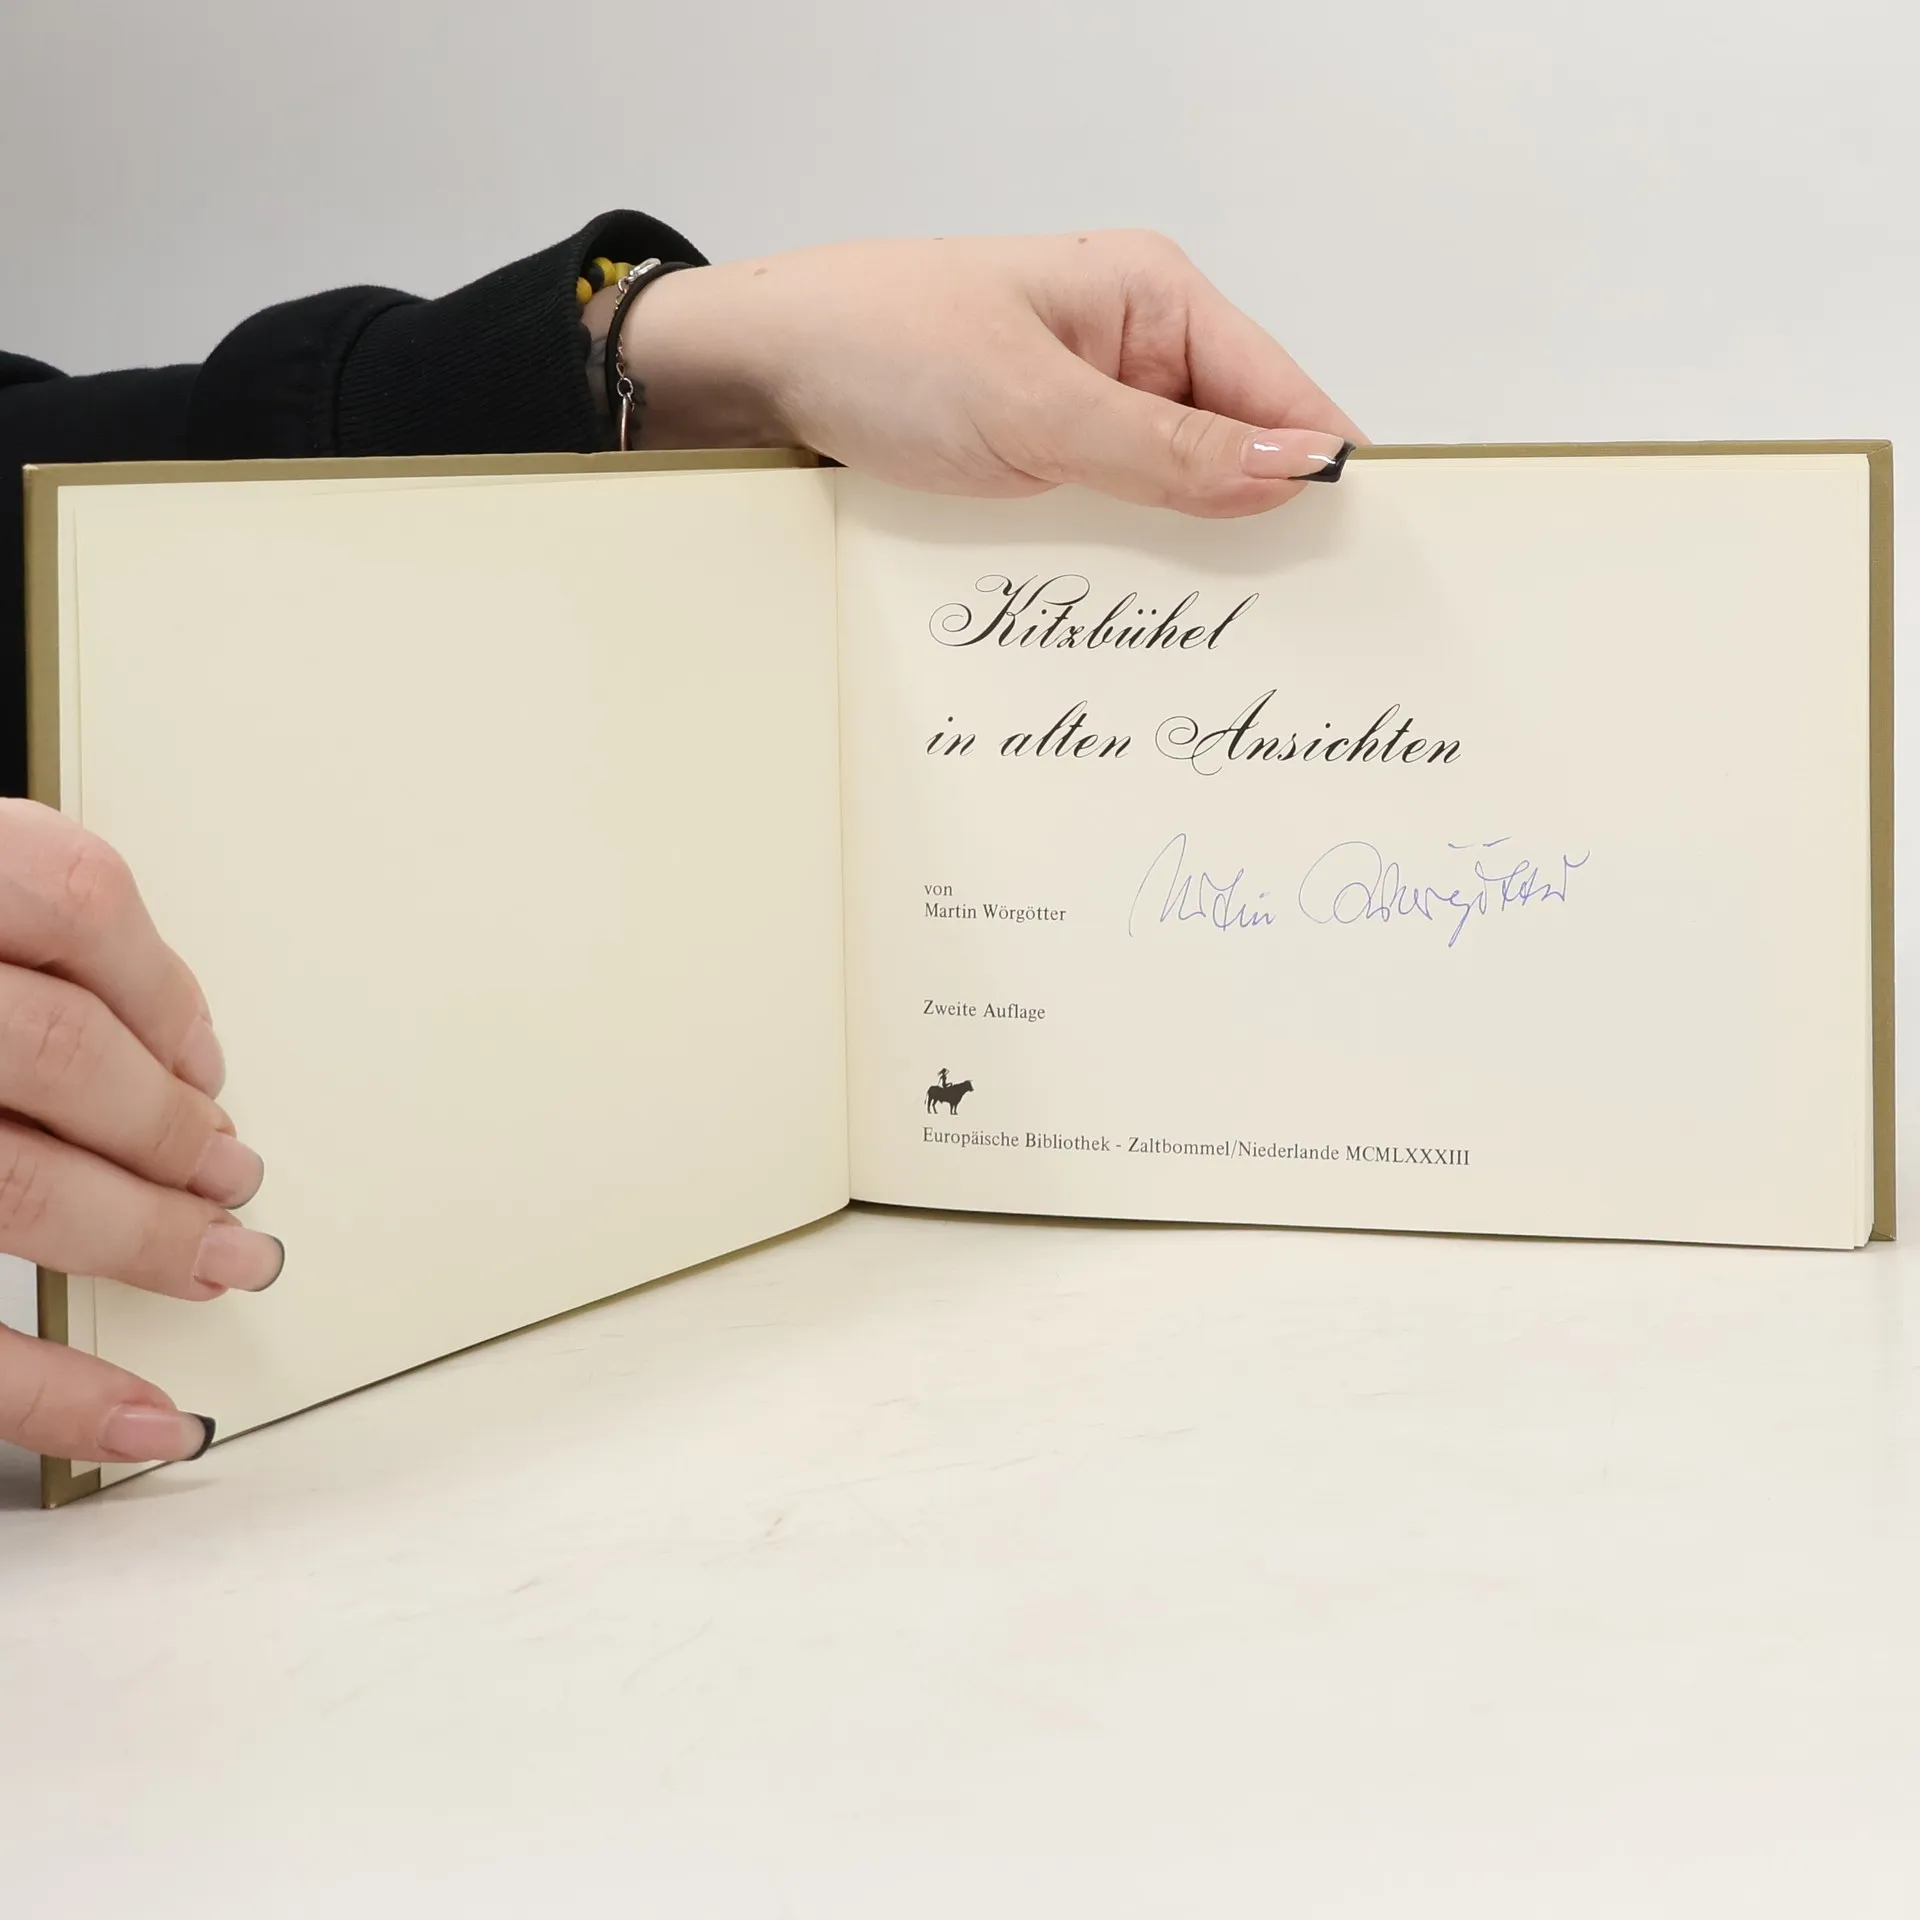 Kitzbühel
in alten Ansichten
von
Martin Wörgötter
Martin Wörgötter
Zweite Auflage
Europäische Bibliothek - Zaltbommel/Niederlande MCMLXXXIII